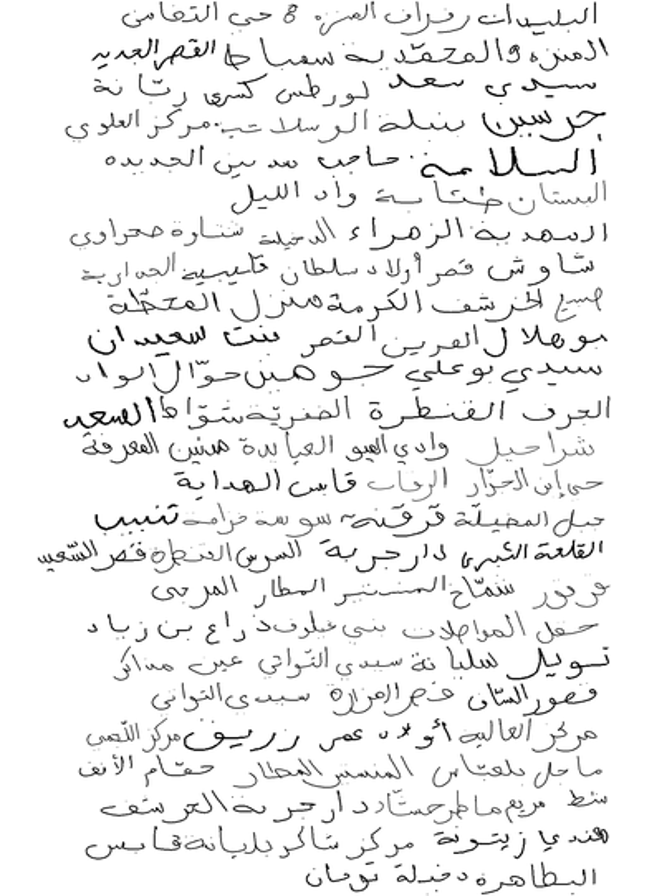 البليدات رفراف المنزه 8 حي التضامن
المنزه 9 المحمّدية سمباط القصر الجديد
سيدي سعد لورطس كسرى ربّانة
جرسين بنبلة الرسلات مركز العلوي
السلامة حاجب مدنين الجديدة
البستان طبّابة واد الليل
المهدية الزهراء الدخيلة شنّارة صحراوي
شاوش قصر أولاد سلطان قليبية الحدادبة
الخرشف الكرمة منزل المحطّة
بوهلال العرين القصر بنت سعيدان
سيدي بوعلي جوهين حوّال الواد
الجرف القنطرة الخضرية شوّاط الصعيد
شراحيل وادي العبايدة مدنين المعرفة
حي ابن الجزّار الرقاب قابس الهداية
جبل المضيلة قرقنة سوسة
القلعة الكبرى دار جربة السرس القنطرة قصر السّعيد
قرقور شمّاخ المنستير المطار المرجى
حقل المواصلات بني خلوف ذراع بن زياد
سليانة سيدي التواتي عين مذاكر
قصور السّاف قصر المزارة سيدي التواتي
مركز العالية أولاد عمر زريف مركز اللّجمي
ماجل بلعبّاس المنستير المطار حمّام الأنف
شط مريم ماطر حشّاد دار جربة الخرشف
هندي زيتونة مركز شاكر بليانة قابس
البطاهرة دخيلة توجان